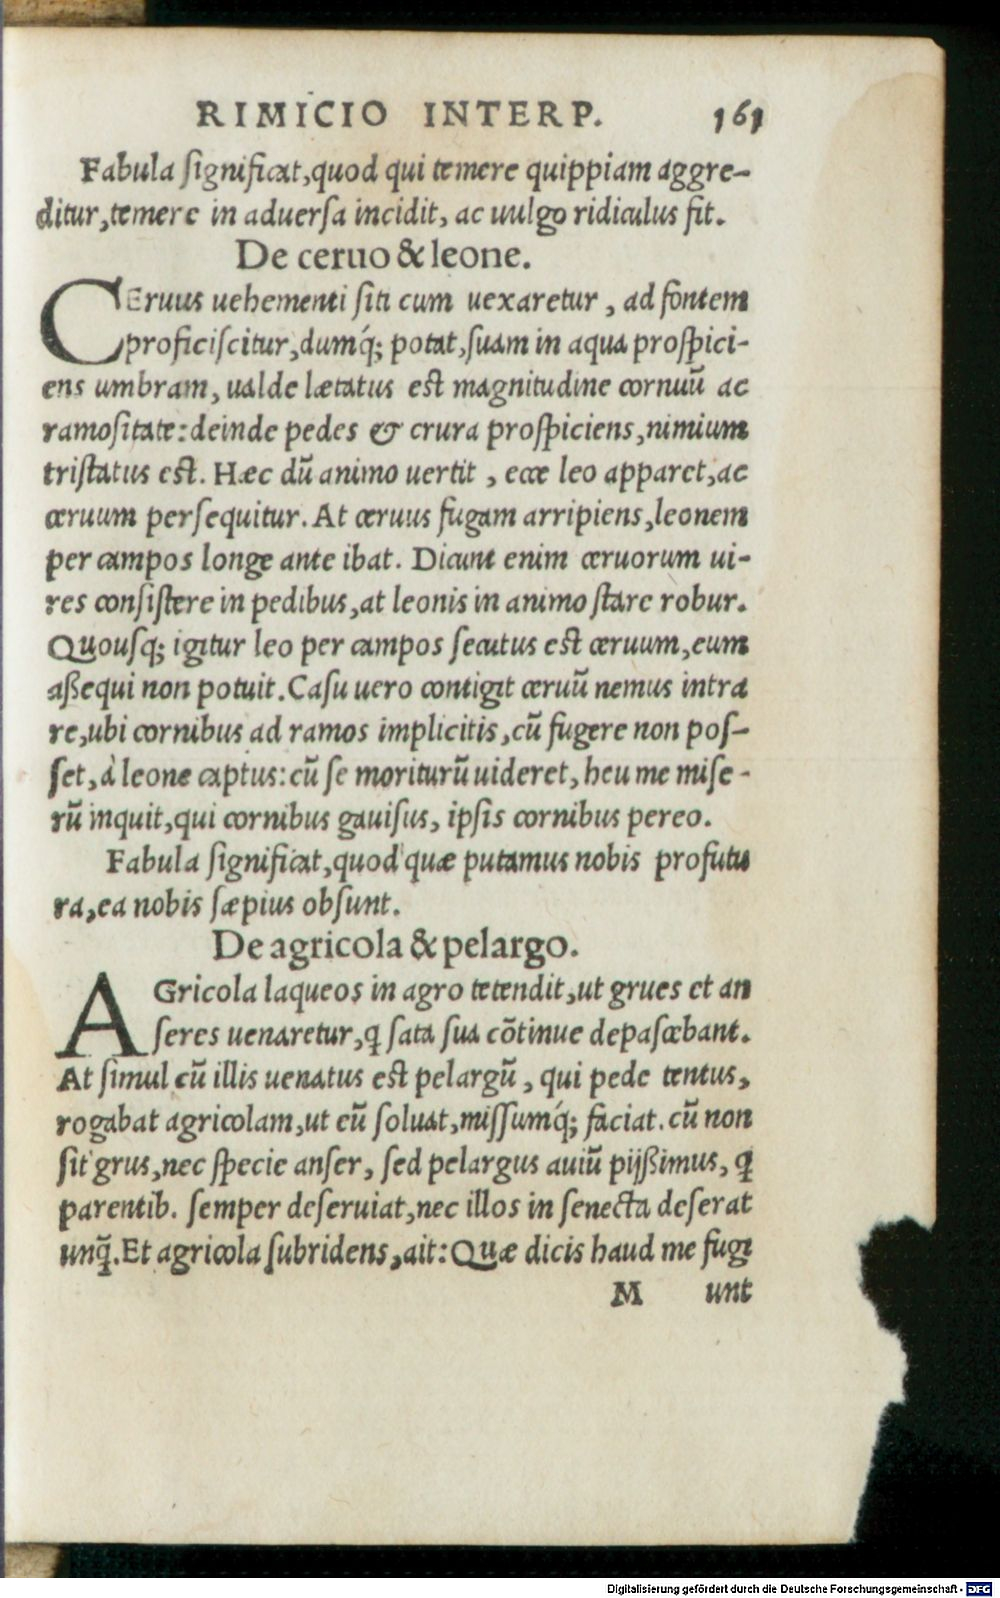 RIMICIO INTERP. 161
Fabula significat, quod qui temere quippiam aggre-
ditur, temere in aduersa incidit, ac uulgo ridiculus fit.
De ceruo & leone.
CEruus uehementi siti cum uexaretur, ad fontem
proficiscitur, dumq́; potat, suam in aqua prospici-
ens umbram, ualde lætatus est magnitudine cornuū ac
ramositate: deinde pedes & crura prospiciens, nimium
tristatus est. Hæc dū animo uertit, ecce leo apparet, ac
ceruum persequitur. At ceruus fugam arripiens, leonem
per campos longe ante ibat. Dicunt enim ceruorum ui-
res consistere in pedibus, at leonis in animo stare robur.
Quousq; igitur leo per campos secutus est ceruum, eum
aßequi non potuit. Casu uero contigit ceruū nemus intra
re, ubi cornibus ad ramos implicitis, cū fugere non pos-
set, à leone captus: cū se moriturū uideret, heu me mise-
rū inquit, qui cornibus gauisus, ipsis cornibus pereo.
Fabula significat, quod quæ putamus nobis profutu
ra, ea nobis sæpius obsunt.
De agricola & pelargo.
AGricola laqueos in agro tetendit, ut grues et an
seres uenaretur, ꝗ sata sua cōtinue depascebant.
At simul cū illis uenatus est pelargū, qui pede tentus,
rogabat agricolam, ut eū soluat, missumq́; faciat. cū non
sit grus, nec specie anser, sed pelargus auiū pijßimus, ꝗ
parentib. semper deseruiat, nec illos in senecta deserat
unq̄. Et agricola subridens, ait: Quæ dicis haud me fugi
M unt
Digitalisierung gefördert durch die Deutsche Forschungsgemeinschaft - DFG